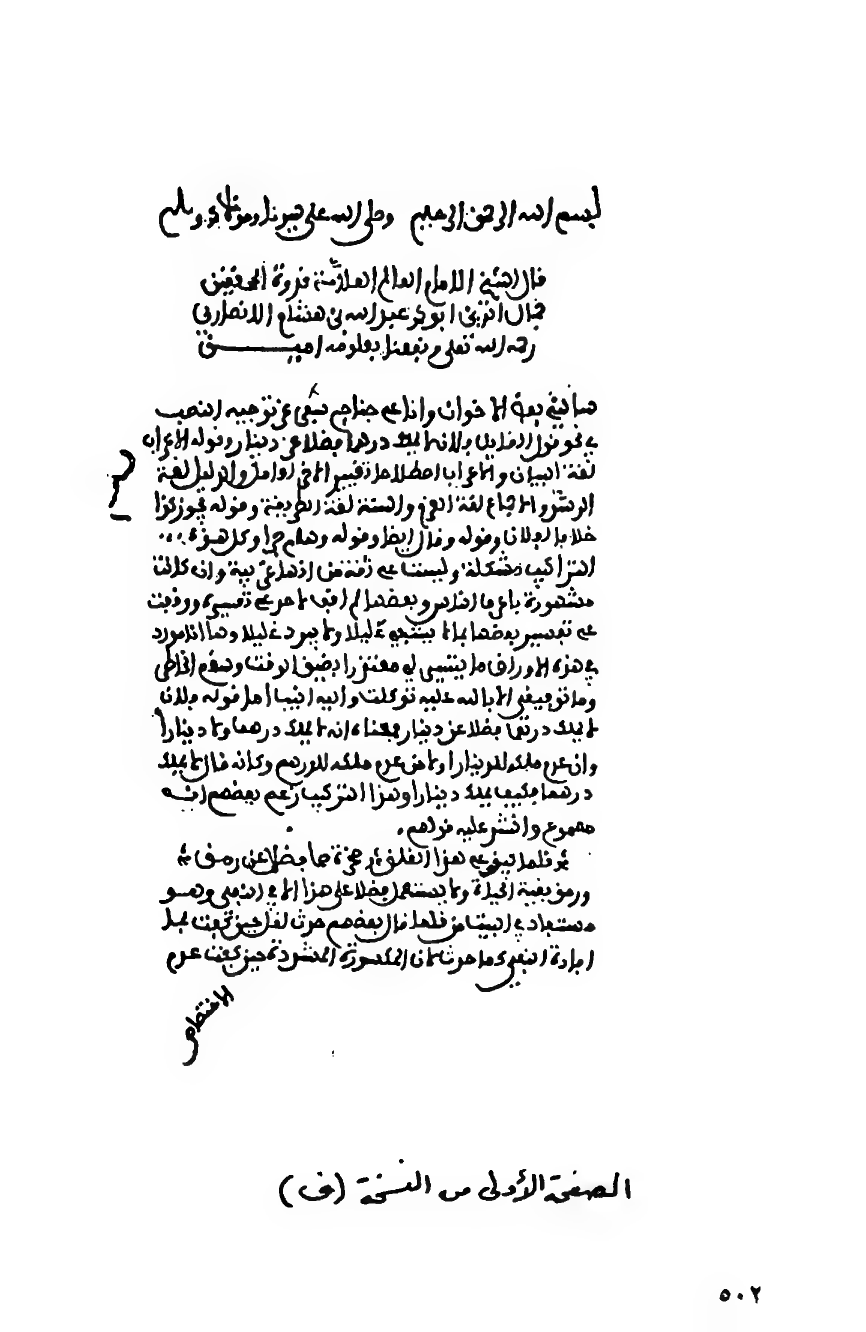 بسم الله الرحمن الرحيم وصلى الله على سيدنا ومولانا وسلم
قال الشيخ الامام العالم العلامة قدوة المحققين
جمال الدين ابو محمد عبد الله بن هشام الانصاري
رحمه الله تعلى ونفعنا بعلومه امين
سالني بعض الاخوان وانا على جناح سفر عن توجيه النصب
في نحو قول القايل فلان لا يملك درهما فضلا عن دينار وقوله الاعراب
لغة البيان والاعراب اصطلاحا تغيير الاخر لعامل والدليل لغة
المرشد والاجماع لغة العزم والسنة لغة الطريقة وقوله يجوز كذا
خلافا لفلان وقوله وقال ايضا وقوله وهلم جرا وكل هذه
التراكيب مشكلة وليست على ثقة من انها عربية وان كانت
مشهورة في عرف الناس وبعضها لم اقف لاحد على تفسيره ووقفت
على تفسير بعضها بما لا يشفي عليلا ولا يبرد غليلا وها انا مورد
في هذه الاوراق ما يتيسر لي معتذرا بضيق الوقت وسقم الخاطر
وما توفيقي الا بالله عليه توكلت واليه انيب اما قوله فلان
لا يملك درهما فضلا عن دينار فمعناه انه لا يملك درهما ولا دينارا
وان عدم ملكه للدينار اولى من عدم ملكه للدرهم وكانه قال لا يملك
درهما فكيف يملك دينارا وهذا التركيب زعم بعضهم انه
مسموع وانشد عليه
قلما يبقى على هذا القلق صخرة صما فضلا عن رمق
ورمق بقية الحياة ولا يستعمل فضلا على هذا الا في النفي وهو
مستفاد في البيت من قلما قال بعضهم حدث لقل حين كفت بما
افادة النفي كما حدث لان المكسورة المشددة حين كفت عدم
الاختصاص
الصفحة الأولى من النسخة (ف)
٥٠٢